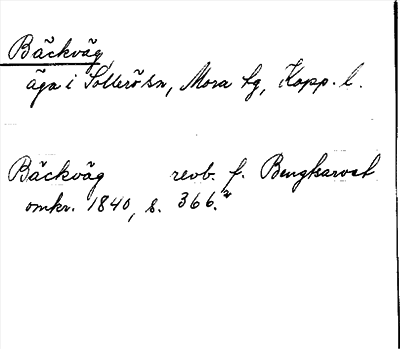 Bäckväg,
äga i Sollerö sn, Mora tg, Kopp. l.
Bäckväg revb. f. Bengtsarvet
omkr. 1840, s. 366.